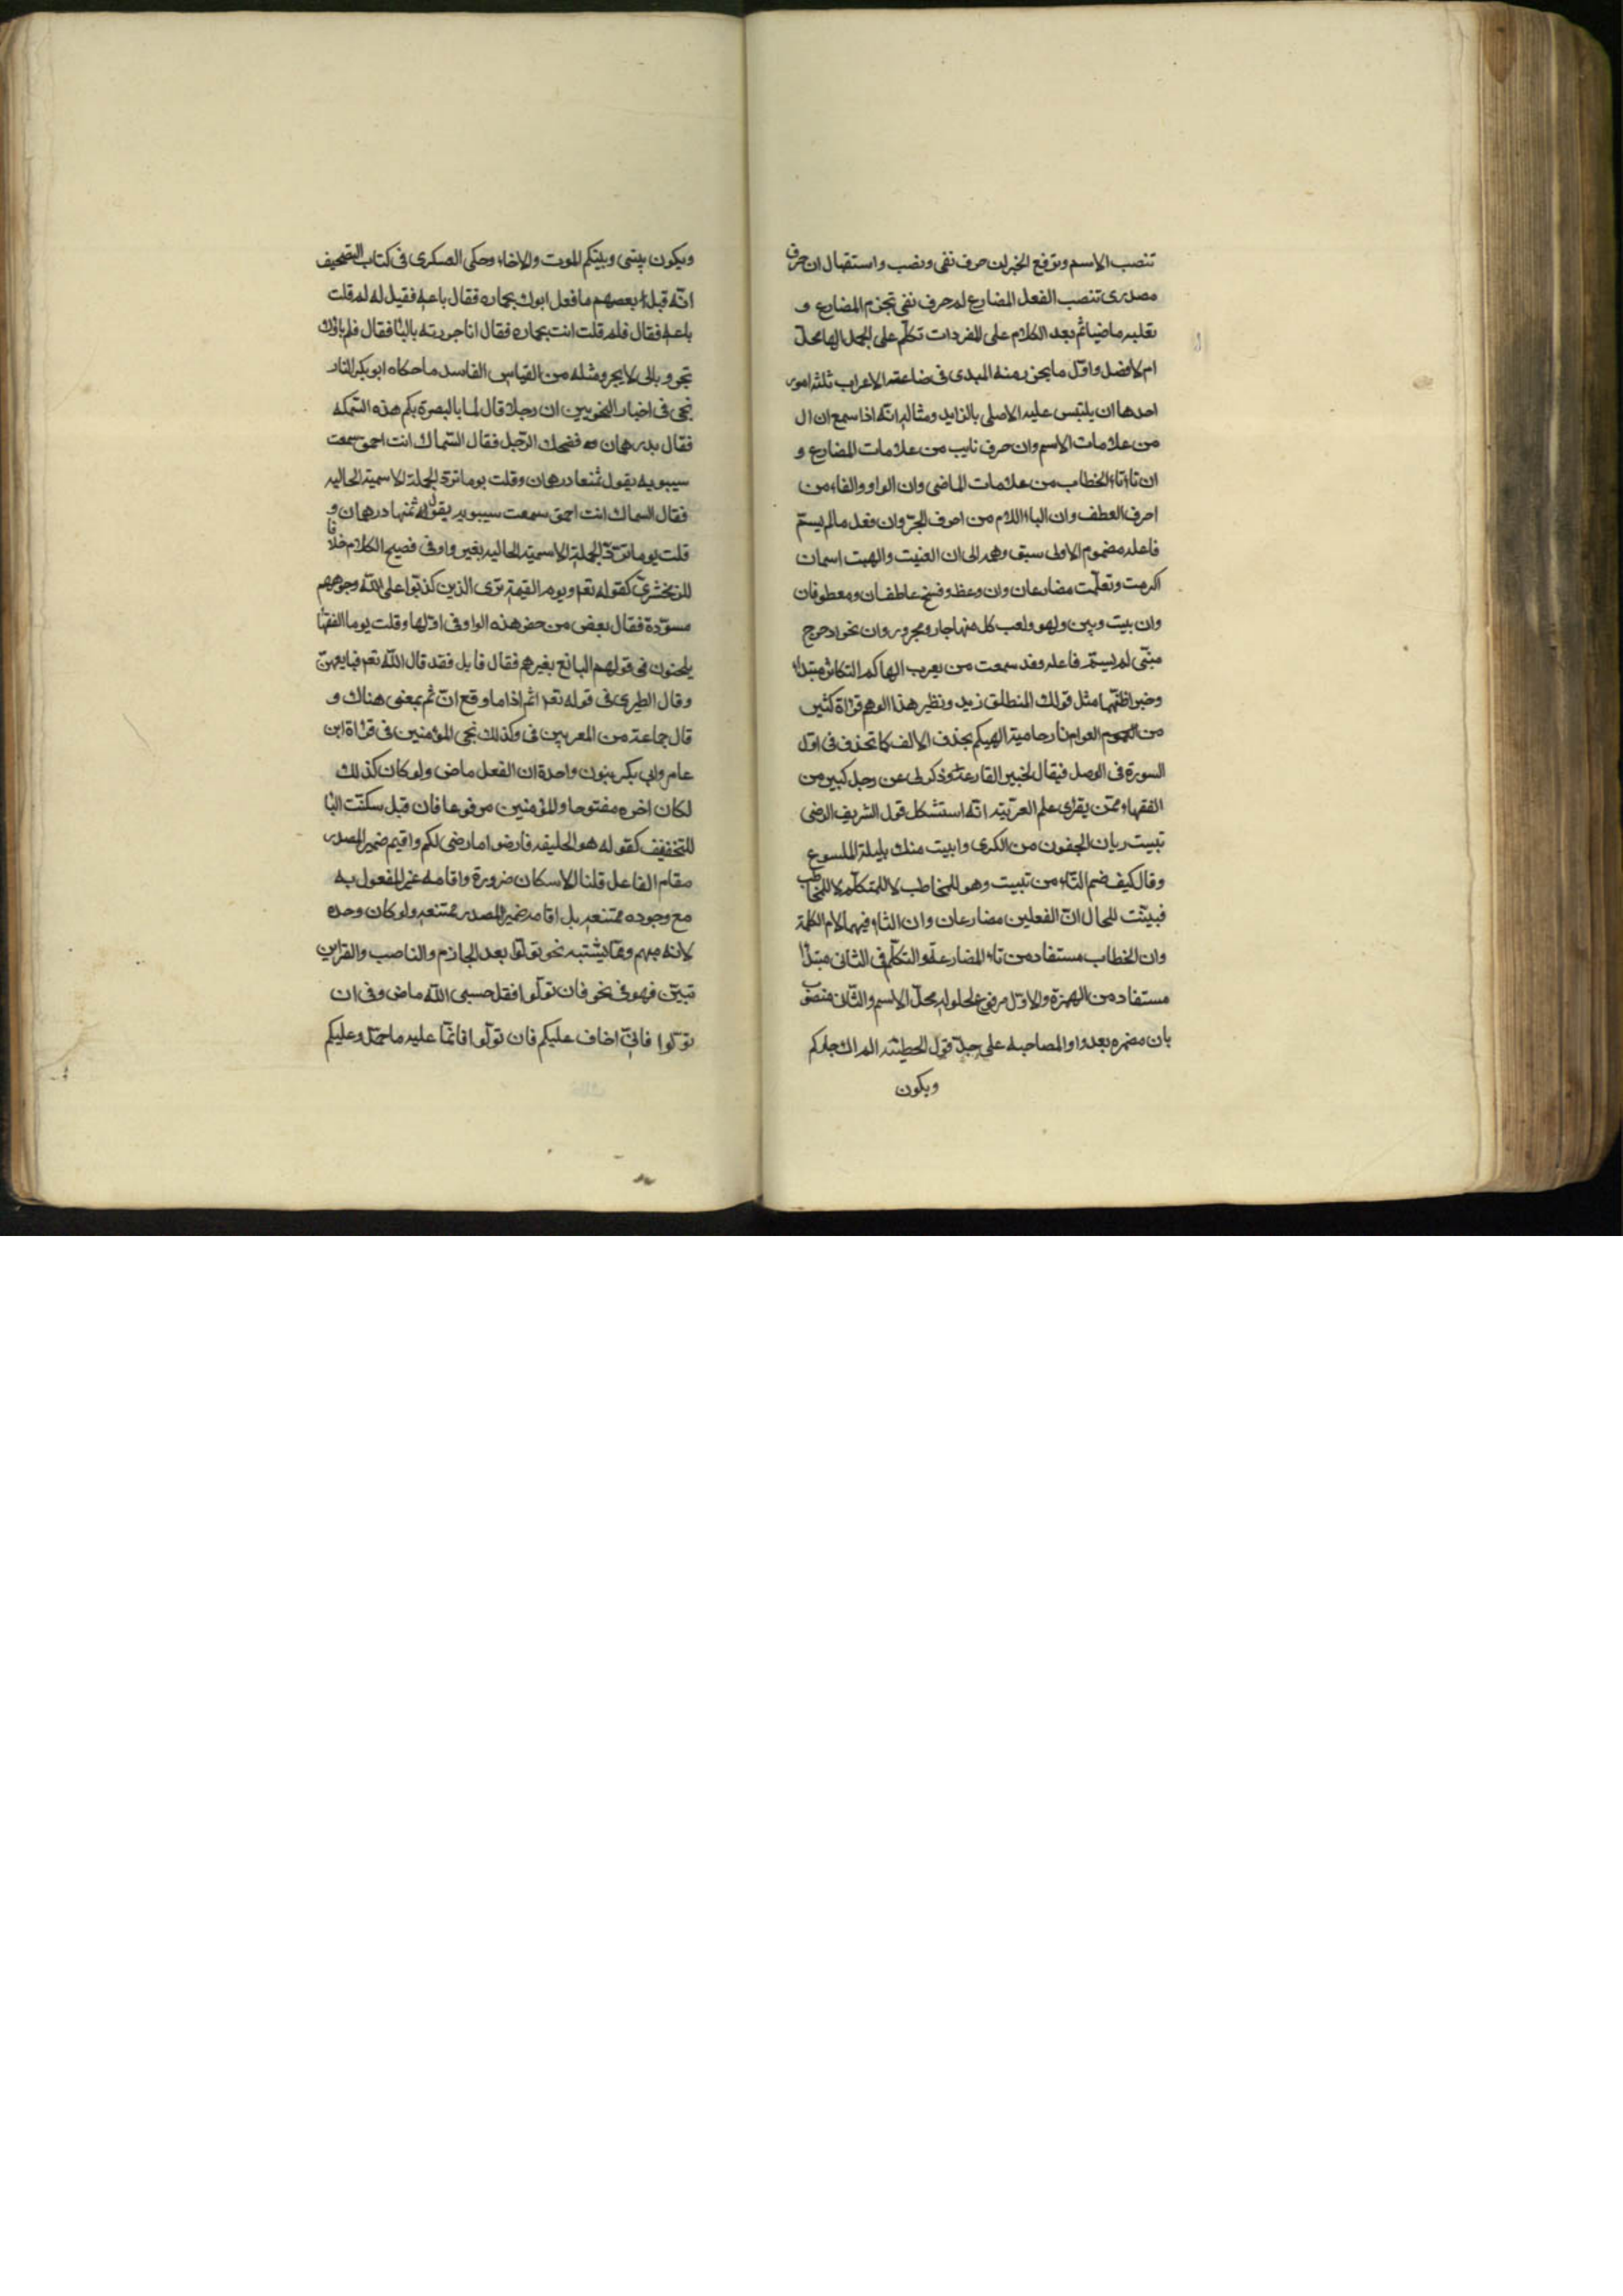 تنصب الاسم وترفع الخبر لن حرف نفى ونصب واستقبال ان حرف
مصدرى تنصب الفعل المضارع لم حرف نفى تجزم المضارع و
تقلبه ماضيا ثم بعد الكلام على المفردات تكلم على الجمل الها محل
ام لا فصل واول ما يحترز منه المبدى فى صناعة الاعراب ثلثة امور
احدها ان يلتبس عليه الاصلى بالزايد ومثاله انه اذا سمع ان ال
من علامات الاسم وان حرف نايب من علامات المضارع و
ان تاء الخطاب من علامات الماضى وان الواو والفاء من
احرف العطف وان الباء اللام من احرف الجر وان فعل ما لم يسم
فاعله مضموم الاول سبق وهمه الى ان الفيت والهبت اسمان
اكرمت وتعلمت مضارعان وان وعظ وفسخ عاطفان ومعطوفان
وان بيت وبين ولهو ولعب كل منها جار ومجرور وان نحو ادحرج
مبنى لم يسم فاعله وقد سمعت من يعرب الهاكم التكاثر مبتدا
وخبر اظنهما مثل قولك المنطلق زيد ونظير هذا الوهم قراة كثير
من العوام نار حامية الهيكم بحذف الالف كما تحذف فى اول
السورة فى الوصل فيقال لخبير القارعة وذكر لى عن رجل كبير من
الفقهاء ممن يقرى علم العربية انه استشكل قول الشريف الرضى
تبيت ريان الجفون من الكرى وابيت منك بليلة الملسوع
وقال كيف ضم التاء من تبيت وهو للمخاطب لا للمتكلم لا للمخاطب
فبينت للحال ان الفعلين مضارعان وان التاء فيهما لام الكلمة
وان الخطاب مستفاد من تاء المضارعة والتكلم فى الثانى مبتدا
مستفاد من الهمزة والاول مرفوع لحلوله محل الاسم والثانى منصوب
بان مضمره بعد واو المصاحبه على حد قول الحطيئه الم اك جاركم
ويكون
ويكون بينى وبينكم المودت والاخاء وحكى العسكرى فى كتاب التصحيف
انه قيل لبعضهم ما فعل ابوك بحماره فقال باعه فقيل له لم قلت
باعه فقال فلم قلت انت بحماره فقال انا جررته بالبا فقال فلم باؤك
تجر وبائى لا يجر ومثله من القياس الفاسد ما حكاه ابو بكر التار
نجى فى اخبار النحويين ان رجلا قال لسما بالبصرة بكم هذه السمكه
فقال بدرهمان فضحك الرجل فقال السماك انت احمق سمعت
سيبويه يقول ثمنها درهمان وقلت يوما ترد الجملة الاسمية الحاليه
فقال السماك انت احمق سمعت سيبويه يقول ثمنها درهمان و
قلت يوما ترد الجملة الاسمية الحاليه بغير واو فى فصيح الكلام خلافا
للزمخشرى كقوله تع ويوم القيمة ترى الذين كذبوا على الله وجوههم
مسودة فقال بعض من حضر هذه الواو فى اولها وقلت يوما الفقها
يلحنون فى قولهم البائع بغير همز فقال قايل فقد قال الله تع فبايعهن
وقال الطبرى فى قوله تع اثم اذا ما وقع ان ثم بمعنى هناك و
قال جماعة من المعربين فى وكذلك نجى المؤمنين فى قراة ابن
عامر وابى بكر بنون واحدة ان الفعل ماض ولو كان كذلك
لكان اخره مفتوحا والمؤمنين مرفوعا فان قيل سكنت اليا
للتخفيف كقوله هو الخليفه فارضوا ما رضى لكم واقيم ضمير المصدر
مقام الفاعل قلنا الاسكان ضرورة واقامه غير المفعول به
مع وجوده ممتنعه بل اقامه ضمير المصدر ممتنعه ولو كان وحده
لانه مبهم ومما يشتبه نحو تولوا بعد الجازم والناصب والقراين
تبين فهو فى نحو فان تولوا فقل حسبى الله ماض وفى ان
تولوا فانى اخاف عليكم فان تولوا فانما عليه ما حمل وعليكم